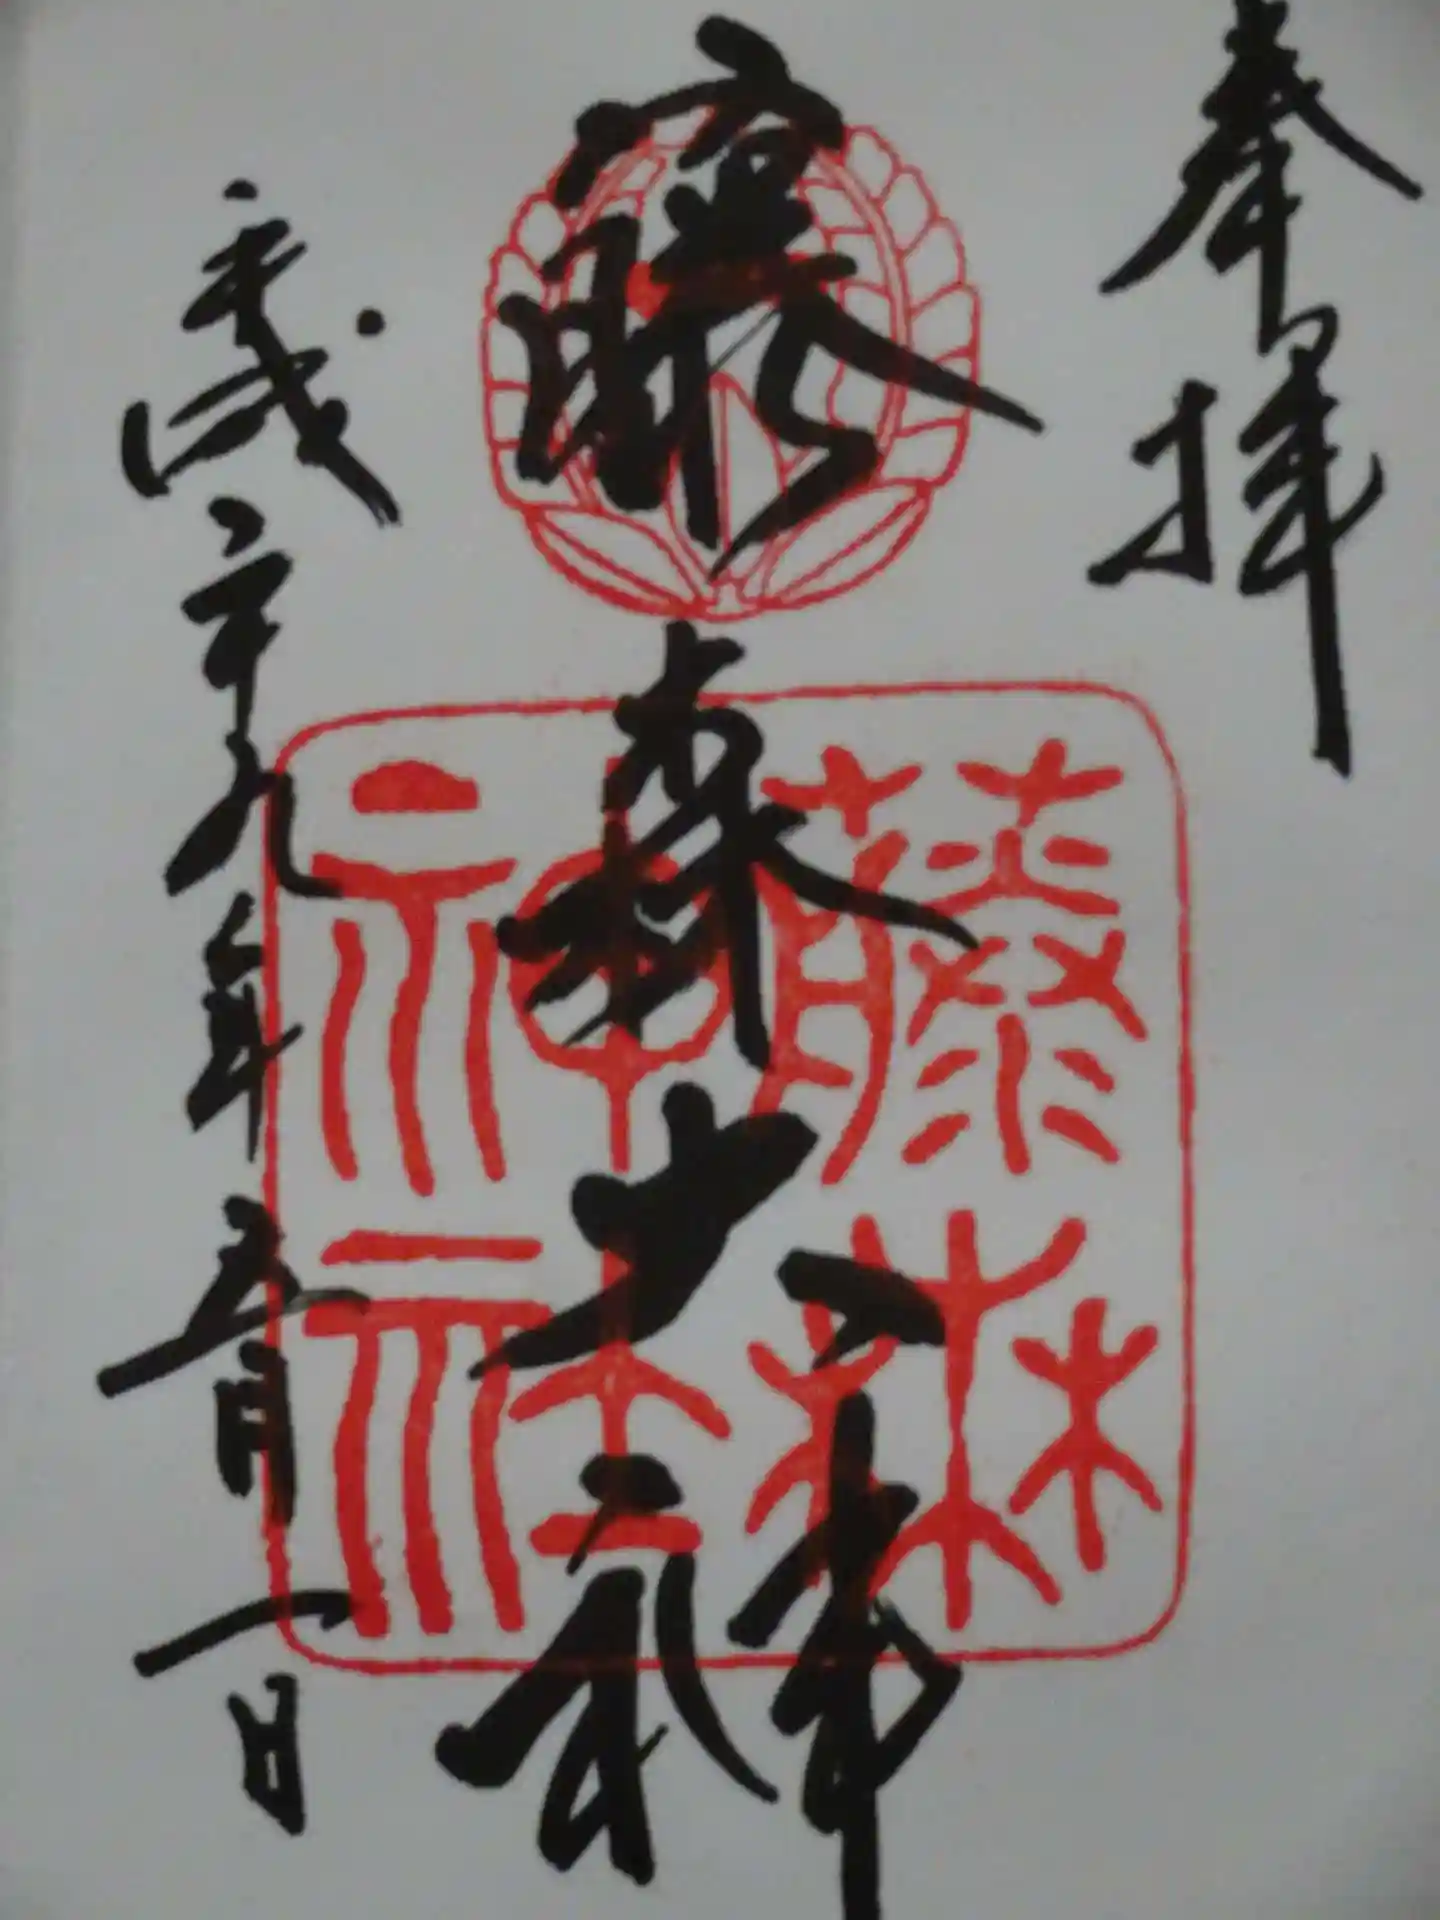 奉拝
藤森大神
藤森神社
平成二十九年五月一日